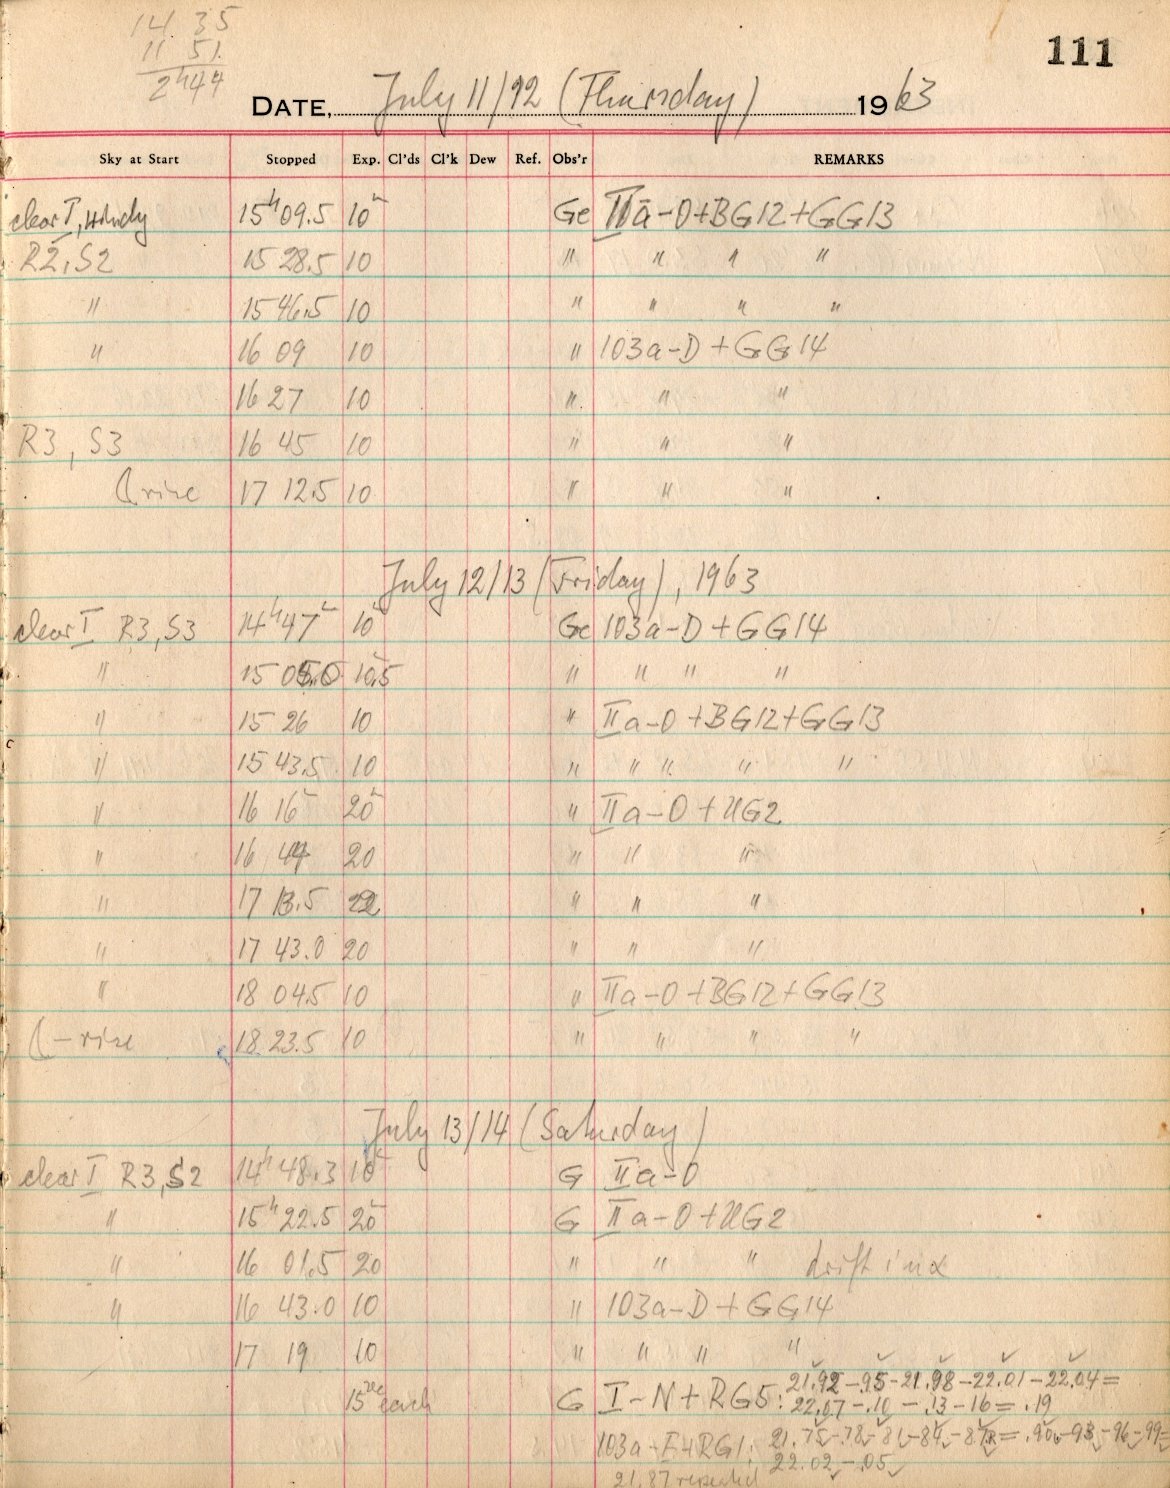 14 35
11 51
2ʰ44
111
DATE, July 11/12 (Thursday) 1963
Sky at Start Stopped Exp. Cl'ds Cl'k Dew Ref. Obs'r REMARKS
clear I, windy 15ʰ09.5 10ᵐ Ge IIa-O+BG12+GG13
R2, S2 15 28.5 10 " " " "
" 15 46.5 10 " " " "
" 16 09 10 " 103a-D+GG14
16 27 10 " " "
R3, S3 16 45 10 " " "
rise 17 12.5 10 " " "
July 12/13 (Friday), 1963
clear I R3, S3 14ʰ47ᵐ 10ᵐ Ge 103a-D+GG14
" 15 05.0 10.5 " " " "
" 15 26 10 " IIa-O+BG12+GG13
" 15 43.5 10 " " " " "
" 16 16 20ᵐ " IIa-O+UG2
" 16 44 20 " " "
" 17 13.5 22 " " "
" 17 43.0 20 " " "
" 18 04.5 10 " IIa-O+BG12+GG13
-rise 18 23.5 10 " " " "
July 13/14 (Saturday)
clear I R3, S2 14ʰ48.3 10ᵐ G IIa-O
" 15ʰ22.5 20ᵐ G IIa-O+UG2
" 16 01.5 20 " " " drift in α
" 16 43.0 10 " 103a-D+GG14
17 19 10 " " " "
15sec each G I-N+RG5: 21.92-.95-21.98-22.01-22.04=
22.07-.10-.13-16=.19
103a-E+RG1: 21.75-.78-81-84-87=.90-93-96-99=
22.02-.05
21.87 repeated